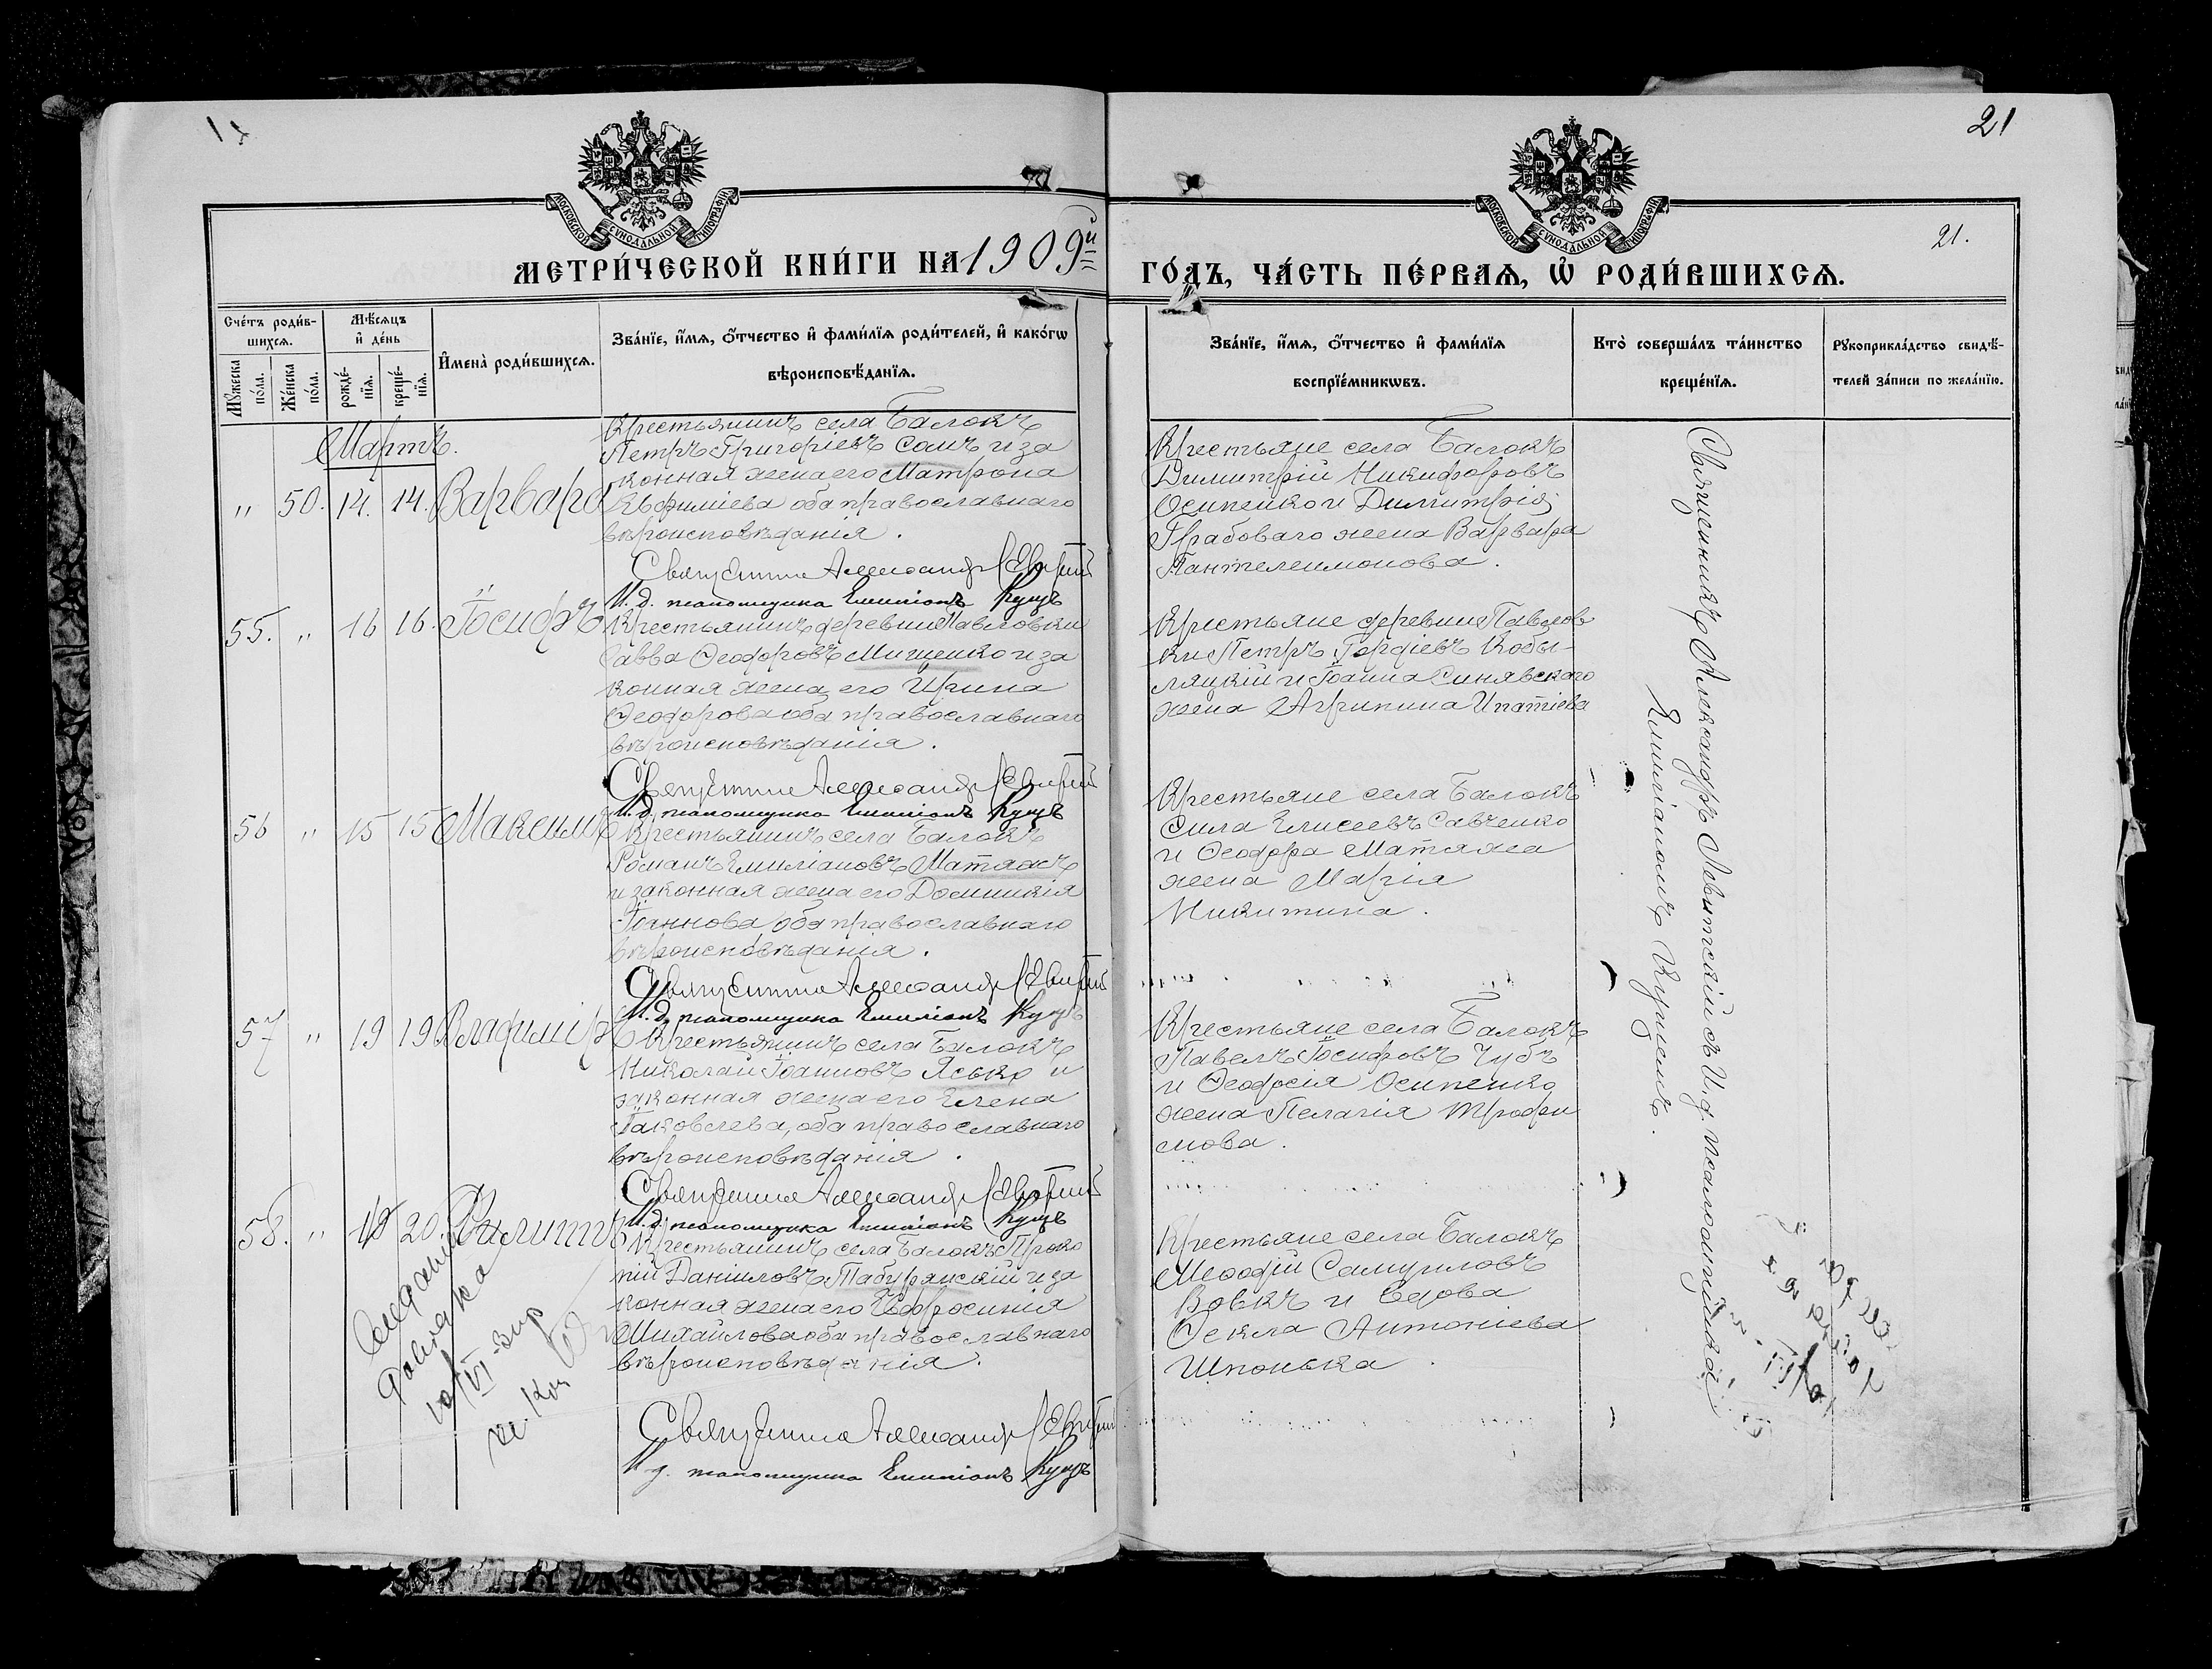 21
МОСКОВСКОЙ СѴНОДАЛЬНОЙ ТИПОГРАФІИ
МОСКОВСКОЙ СѴНОДАЛЬНОЙ ТИПОГРАФІИ
21.
МЕТРИ́ЧЕСКОЙ КНИ́ГИ НА 1909й
ГО́ДЪ, ЧА́СТЬ ПЕ́РВАѦ, Ѽ РОДИ́ВШИХСѦ.
Сче́тъ роди́в-
шихсѧ.
Мꙋ́жеска по́ла.
Же́нска по́ла.
Мѣ́сѧцъ
и҆ де́нь
рожде́-
нїѧ.
креще́-
нїѧ.
И҆мена̀ роди́вшихсѧ.
Зва́нїе, и҆́мѧ, ѻ҆́тчество и҆ фами́лїѧ роди́телей, и҆ како́гѡ
вѣроисповѣ́данїѧ.
Зва́нїе, и҆́мѧ, ѻ҆́тчество и҆ фами́лїѧ
воспрїе́мникѡвъ.
Кто̀ соверша́лъ та́инство
креще́нїѧ.
Рꙋкоприкла́дство свидѣ́-
телей за́писи по жела́нїю.
Мартъ.
" 50. 14. 14. Варвара
Крестьянинъ села Балокъ
Петръ Григоріевъ Сомъ и за
конная жена его Матрона
Евфиміева оба православнаго
вѣроисповѣданія.
Священникъ Александръ Левитскій
И.д. псаломщика Емиліанъ Куцъ
Крестьяне села Балокъ
Димитрій Никифоровъ
Осипенко и Димитрія
Грабоваго жена Варвара
Пантелеимонова.
55. " 16 16. Іосифъ
Крестьянинъ деревни Павловки
Савва Ѳеодоровъ Мищенко и за
конная жена его Ирина
Ѳеодорова оба православнаго
вѣроисповѣданія.
Священникъ Александръ Левитскій
И.д. псаломщика Емиліанъ Куцъ
Крестьяне деревни Павлов
ки Петръ Гордіевъ Кобы-
ляцкій и Іоанна Синявскаго
жена Агрипина Ипатіева
56 " 15 15 Максимъ
Крестьянинъ села Балокъ
Романъ Емиліановъ Матяжъ
и законная жена его Домникія
Іоаннова оба православнаго
вѣроисповѣданія.
Священникъ Александръ Левитскій
И.д. псаломщика Емиліанъ Куцъ
Крестьяне села Балокъ
Сила Елисеевъ Савченко
и Ѳеодора Матяжа
жена Марія
Никитина.
57 " 19 19 Владиміръ
Крестьянинъ села Балокъ
Николай Іоанновъ Ясько и
законная жена его Елена
Іаковлева, оба православнаго
вѣроисповѣданія.
Священникъ Александръ Левитскій
И.д. псаломщика Емиліанъ Куцъ
Крестьяне села Балокъ
Павелъ Іосифовъ Чубъ
и Ѳеодосія Осипенко
жена Пелагія Трофи
мова.
58. " 20. Филиппъ
Крестьянинъ села Балокъ Проко
пій Даніиловъ Табурянскій и за
конная жена его Евфросинія
Михайлова оба православнаго
вѣроисповѣданія.
Священникъ Александръ Левитскій
И.д. псаломщика Емиліанъ Куцъ
Крестьяне села Балокъ
Меѳодій Самуиловъ
Вовкъ и вдова
Ѳекла Антоніева
Шпонька.
Священникъ Александръ Левитскій съ И.д. псаломщика
Емиліаномъ Куцъемъ.